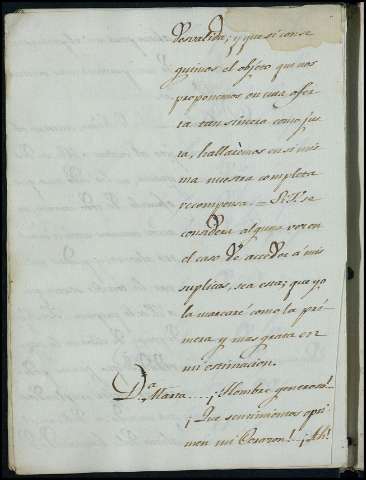 desvalida; y que si conse
guimos el objeto que nos
proponemos en esta ofer
ta tan sincera como jus
ta, hallaremos en si mis
ma nuestra completa
recompensa. = Si V. se
considera alguna vez en
el caso de acceder á mis
suplicas, sea esta; que yo
la marcaré como la pri
mera y mas grata en
mi estimacion.
D.ª Marta .... ¡Hombre generoso!
¡Que sentimientos opri
men mi Corazon! ¡Ah!